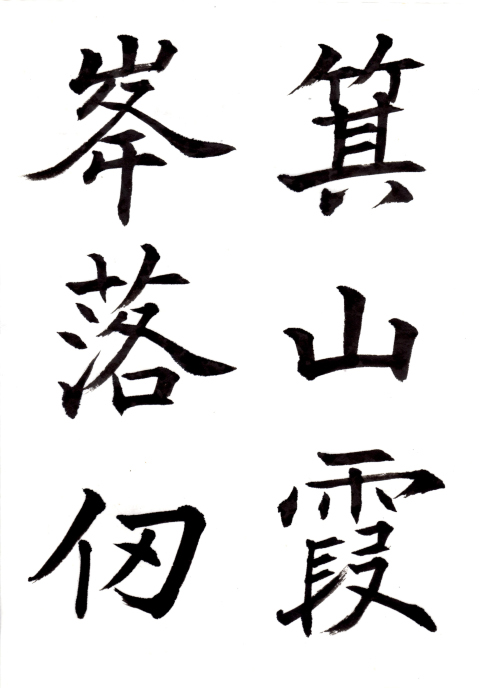 箕山霞
峯落仞